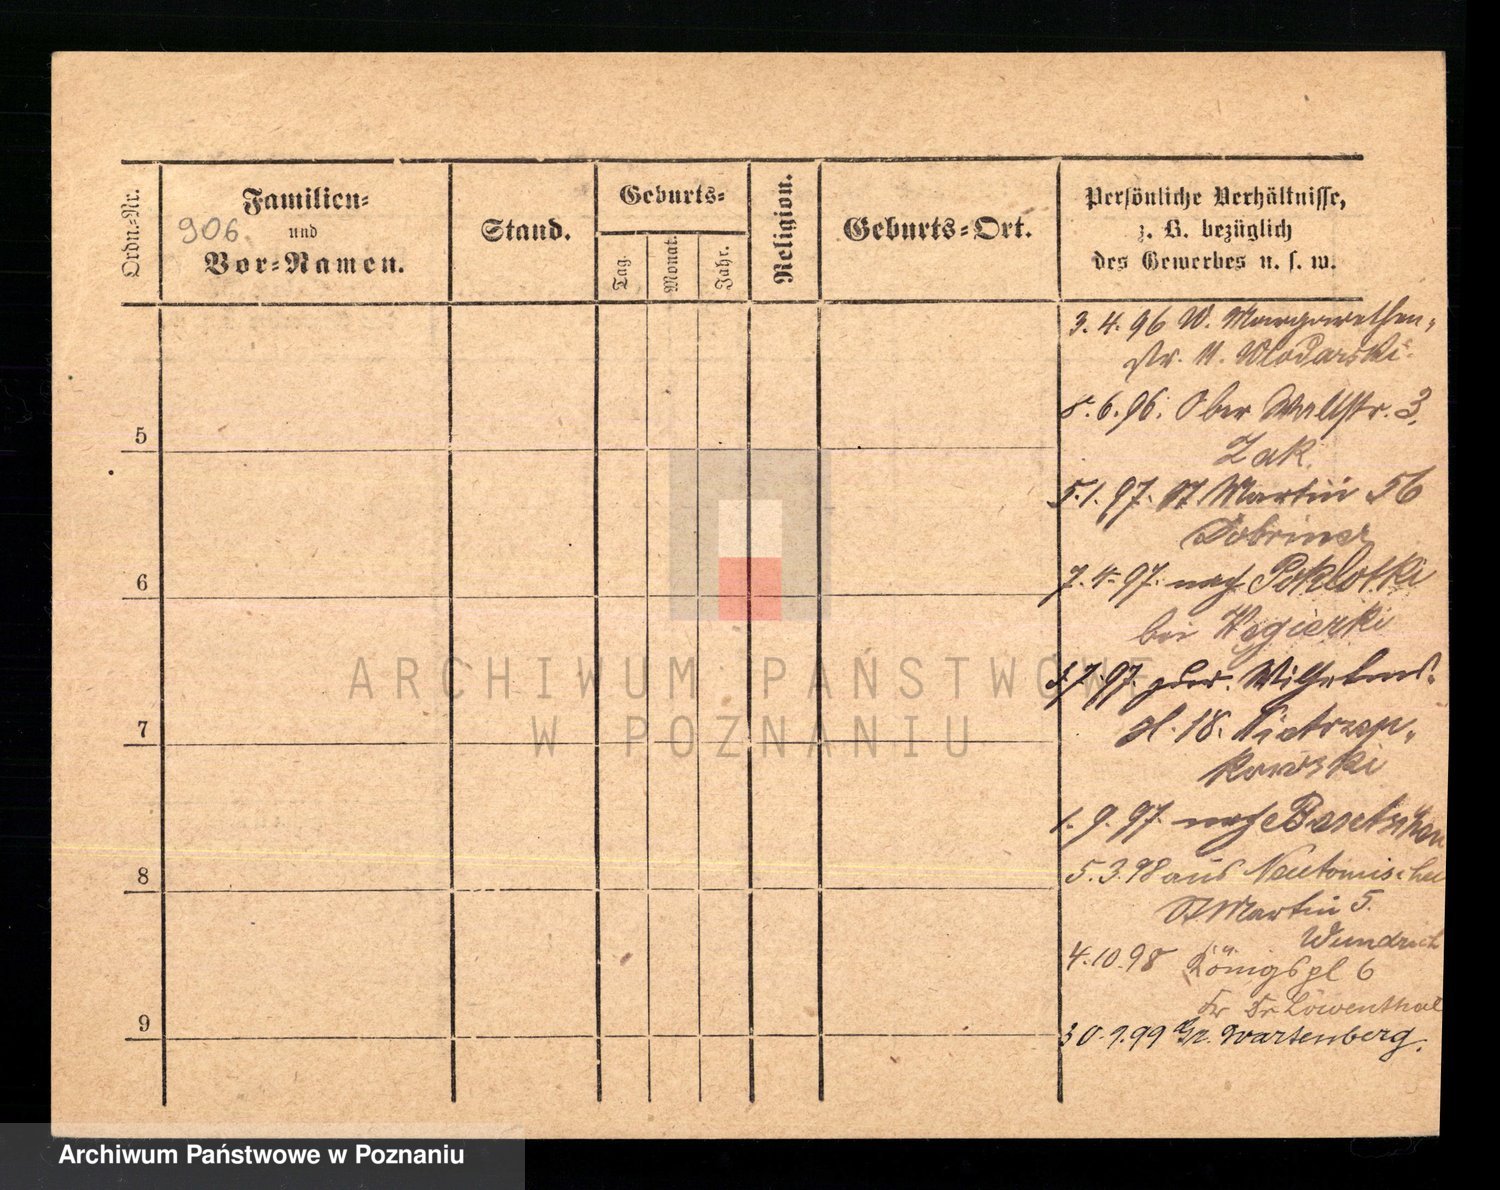 Ordn.-Nr.
Familien-
und
Vor-Namen.
906
Stand.
Geburts-
Tag.
Monat.
Jahr.
Religion.
Geburts-Ort.
Persönliche Verhältnisse,
z. B. bezüglich
des Gewerbes u. s. w.
3. 4. 96 W. Margarethen-
str. 11. Wlodarski.
8. 6. 96. Ober Wallstr. 3.
Zak.
5
5. 1. 97. St Martin 56
Dobriner
6
7. 4. 97. nach Poklotki
bei Wegierski
97. zur. Wilhelms-
pl. 18. Pietrzep-
kowski
7
1. 9. 97. nach Bentschen
5. 3. 98 aus Neutomischel
8
St Martin 5.
Wundrich
4. 10. 98 Königspl 6
Dr Löwenthal
9
30. 9. 99 Gr. Wartenberg.
ARCHIWUM PAŃSTWOWE
W POZNANIU
Archiwum Państwowe w Poznaniu